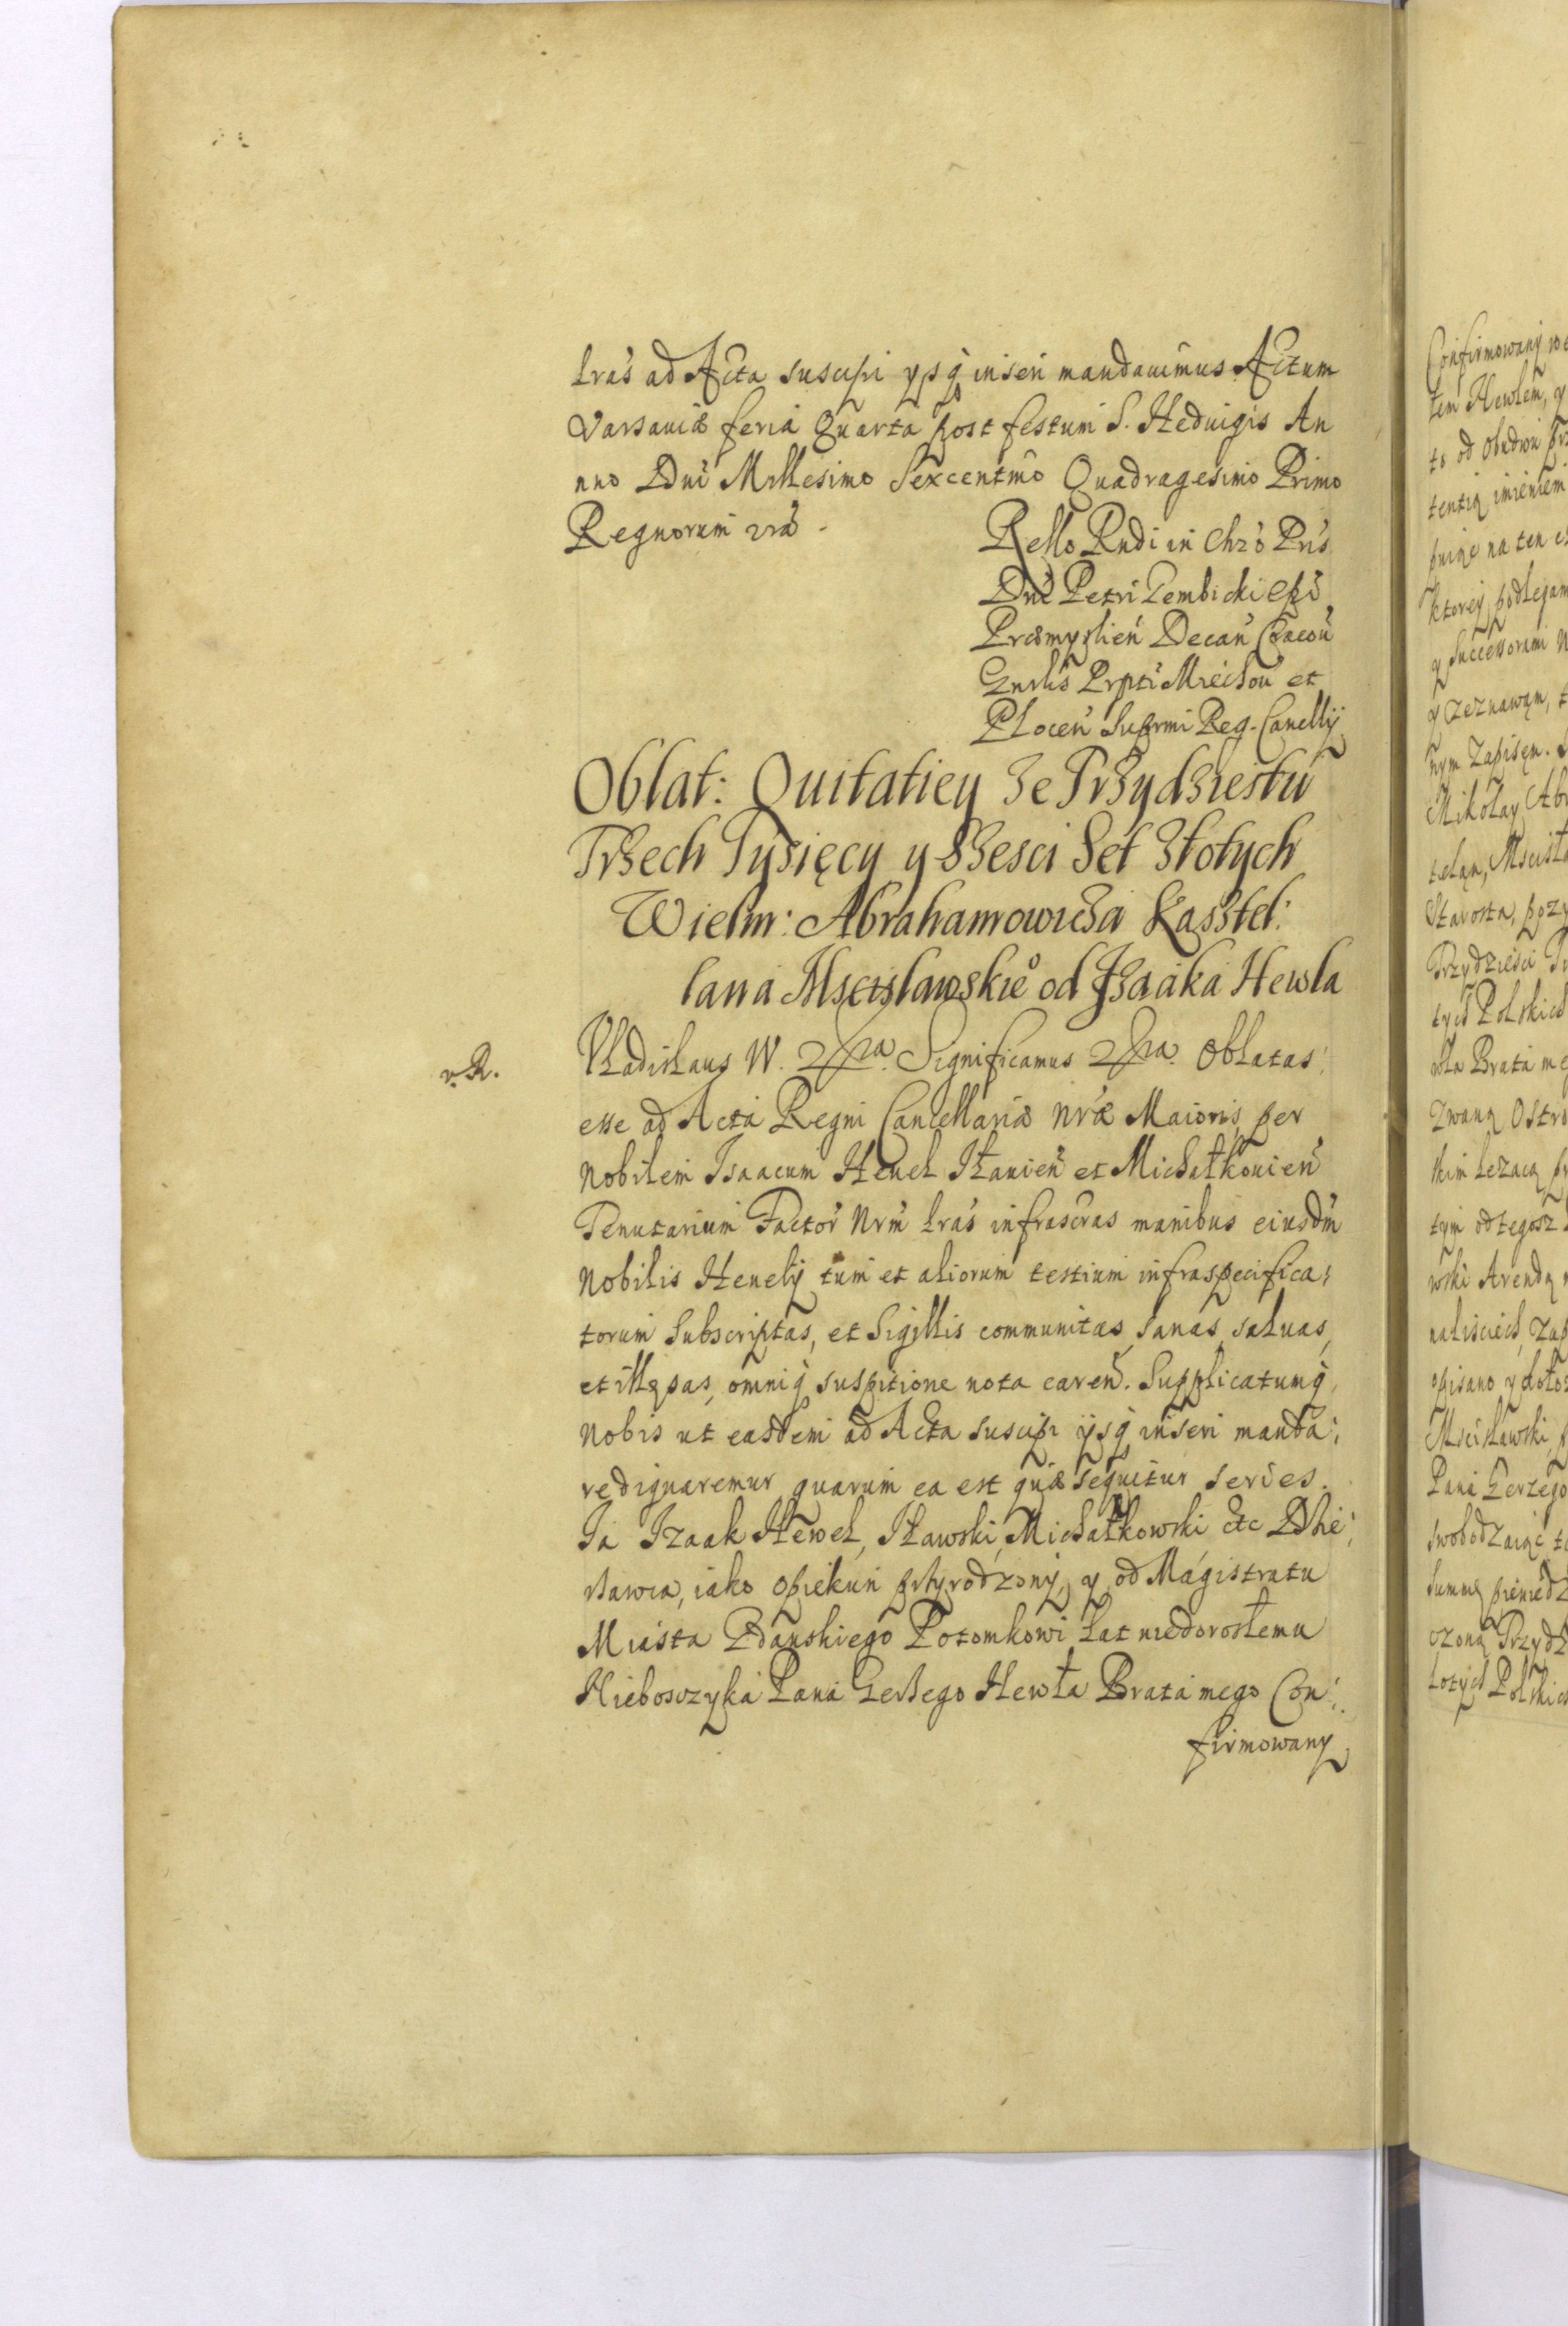 Lrás ad Acta suscipi ysq́ inseri mandauimus Actum
Varsauiæ feria Quarta post festum S. Heduigis An
nno Dni Millesimo Sexcentmo Quadragesimo Primo
Regnorum vrã
Rello Rndi in Chrõ Pris
Dni Petri Gembicki Epi
Præmyslien Decan Cracou
Gnrlis Prpti Miechou et
Plocen Suprmi Reg. Cancellÿ
Oblat: Quitatiey Ze Trzydziestu
Trzech Tysięcy y Szesci Set Złotych
Wielm: Abrahamowicza Kasztel:
lana Mscislawskie° od Izaaka Hewla
v. R.
Vladislaus IV. Significamus Oblatas
esse ad Acta Regni Cancellariæ nræ Maioris per
Nobilem Isaacum Heuel Iławien et Michałkouien
Tenutarium Factor Nrm Lrás infrascras manibus eiusdm
Nobilis Heuelÿ tum et aliorum testium infraspecifica:
torum Subscriptas, et Sigillis communitas, sanas, saluas,
et illęsas, omniq́ suspitione nota caren. Supplicatumq́
Nobis ut easdem ad Acta suscipi ÿsq́ inseri manda:
redignaremur quarum ea est quæ sequitur series.
Ia Izaak Hewel, Iławski, Michałkowski etc Dzie:
rzawca, iako opiekun przyrodzony, y od Magistratu
Miasta Gdanskiego Potomkowi Lat niedorosłemu
Nieboszczyka Pana Gerzego Hewła Brata mego Con:
firmowany
Confirmowany
tem Hewlem, y
to od Obudwu
tentią imieniem
na ten
ktorey podlegam
y Successorami
y zeznawąm,
nym Zapisęn.
Mikołay Abr
telan, Mscisł
Starosta,
Trzydziesci
tych Polskich
wła Brata me
Zwaną Ostro
skim Leżacą
tym od tegosz
wski Arendą
nalisciech, Zap
opisano y dołoż
Mscisławski,
Pana Gerzego
swobodzaiąc
Summę pieniedz
czoną Trzydz
łotych Polskich